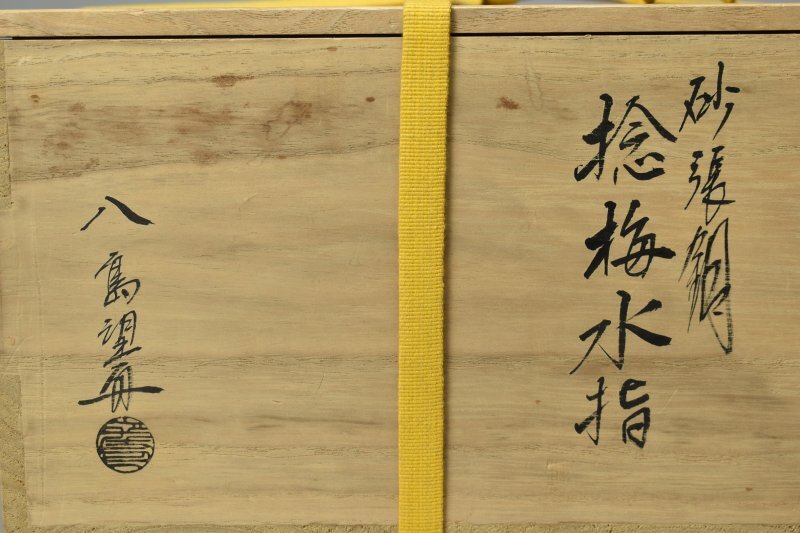 砂張銅
捻梅水指
八島望舟